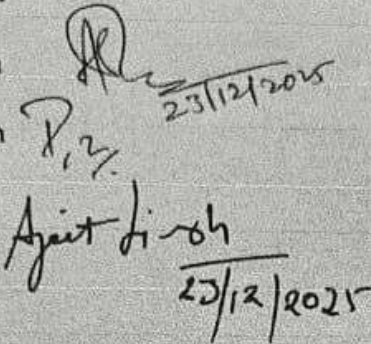 23/12/2025
Ajeet Singh
23/12/2025